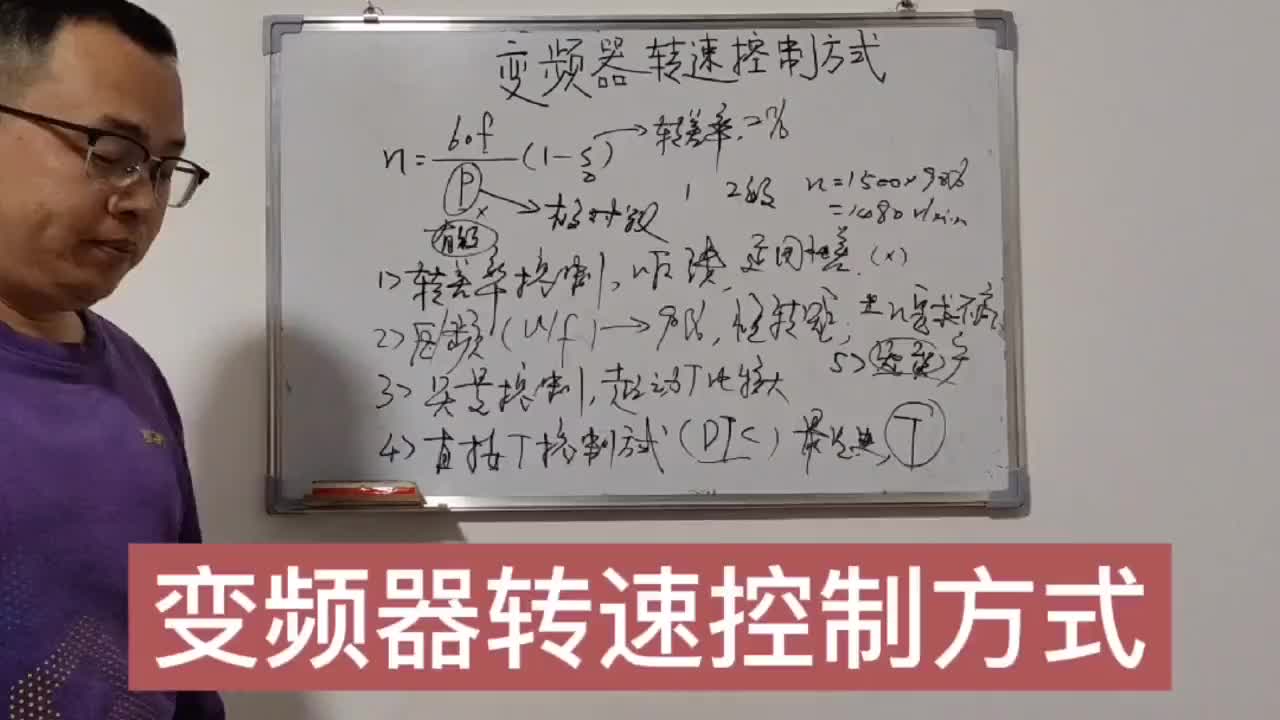 变频器转速控制方式
n=60f/P(1-s) → 转差率.2%
P → 极对数 1 2级 n=1500×98%
=1480r/min
有级
1>转差率控制,
2>压频(U/f)→90%,恒转矩,
3>矢量控制,起动T比较大
5>
4>直接T控制方式(DTC)最先进,T
变频器转速控制方式